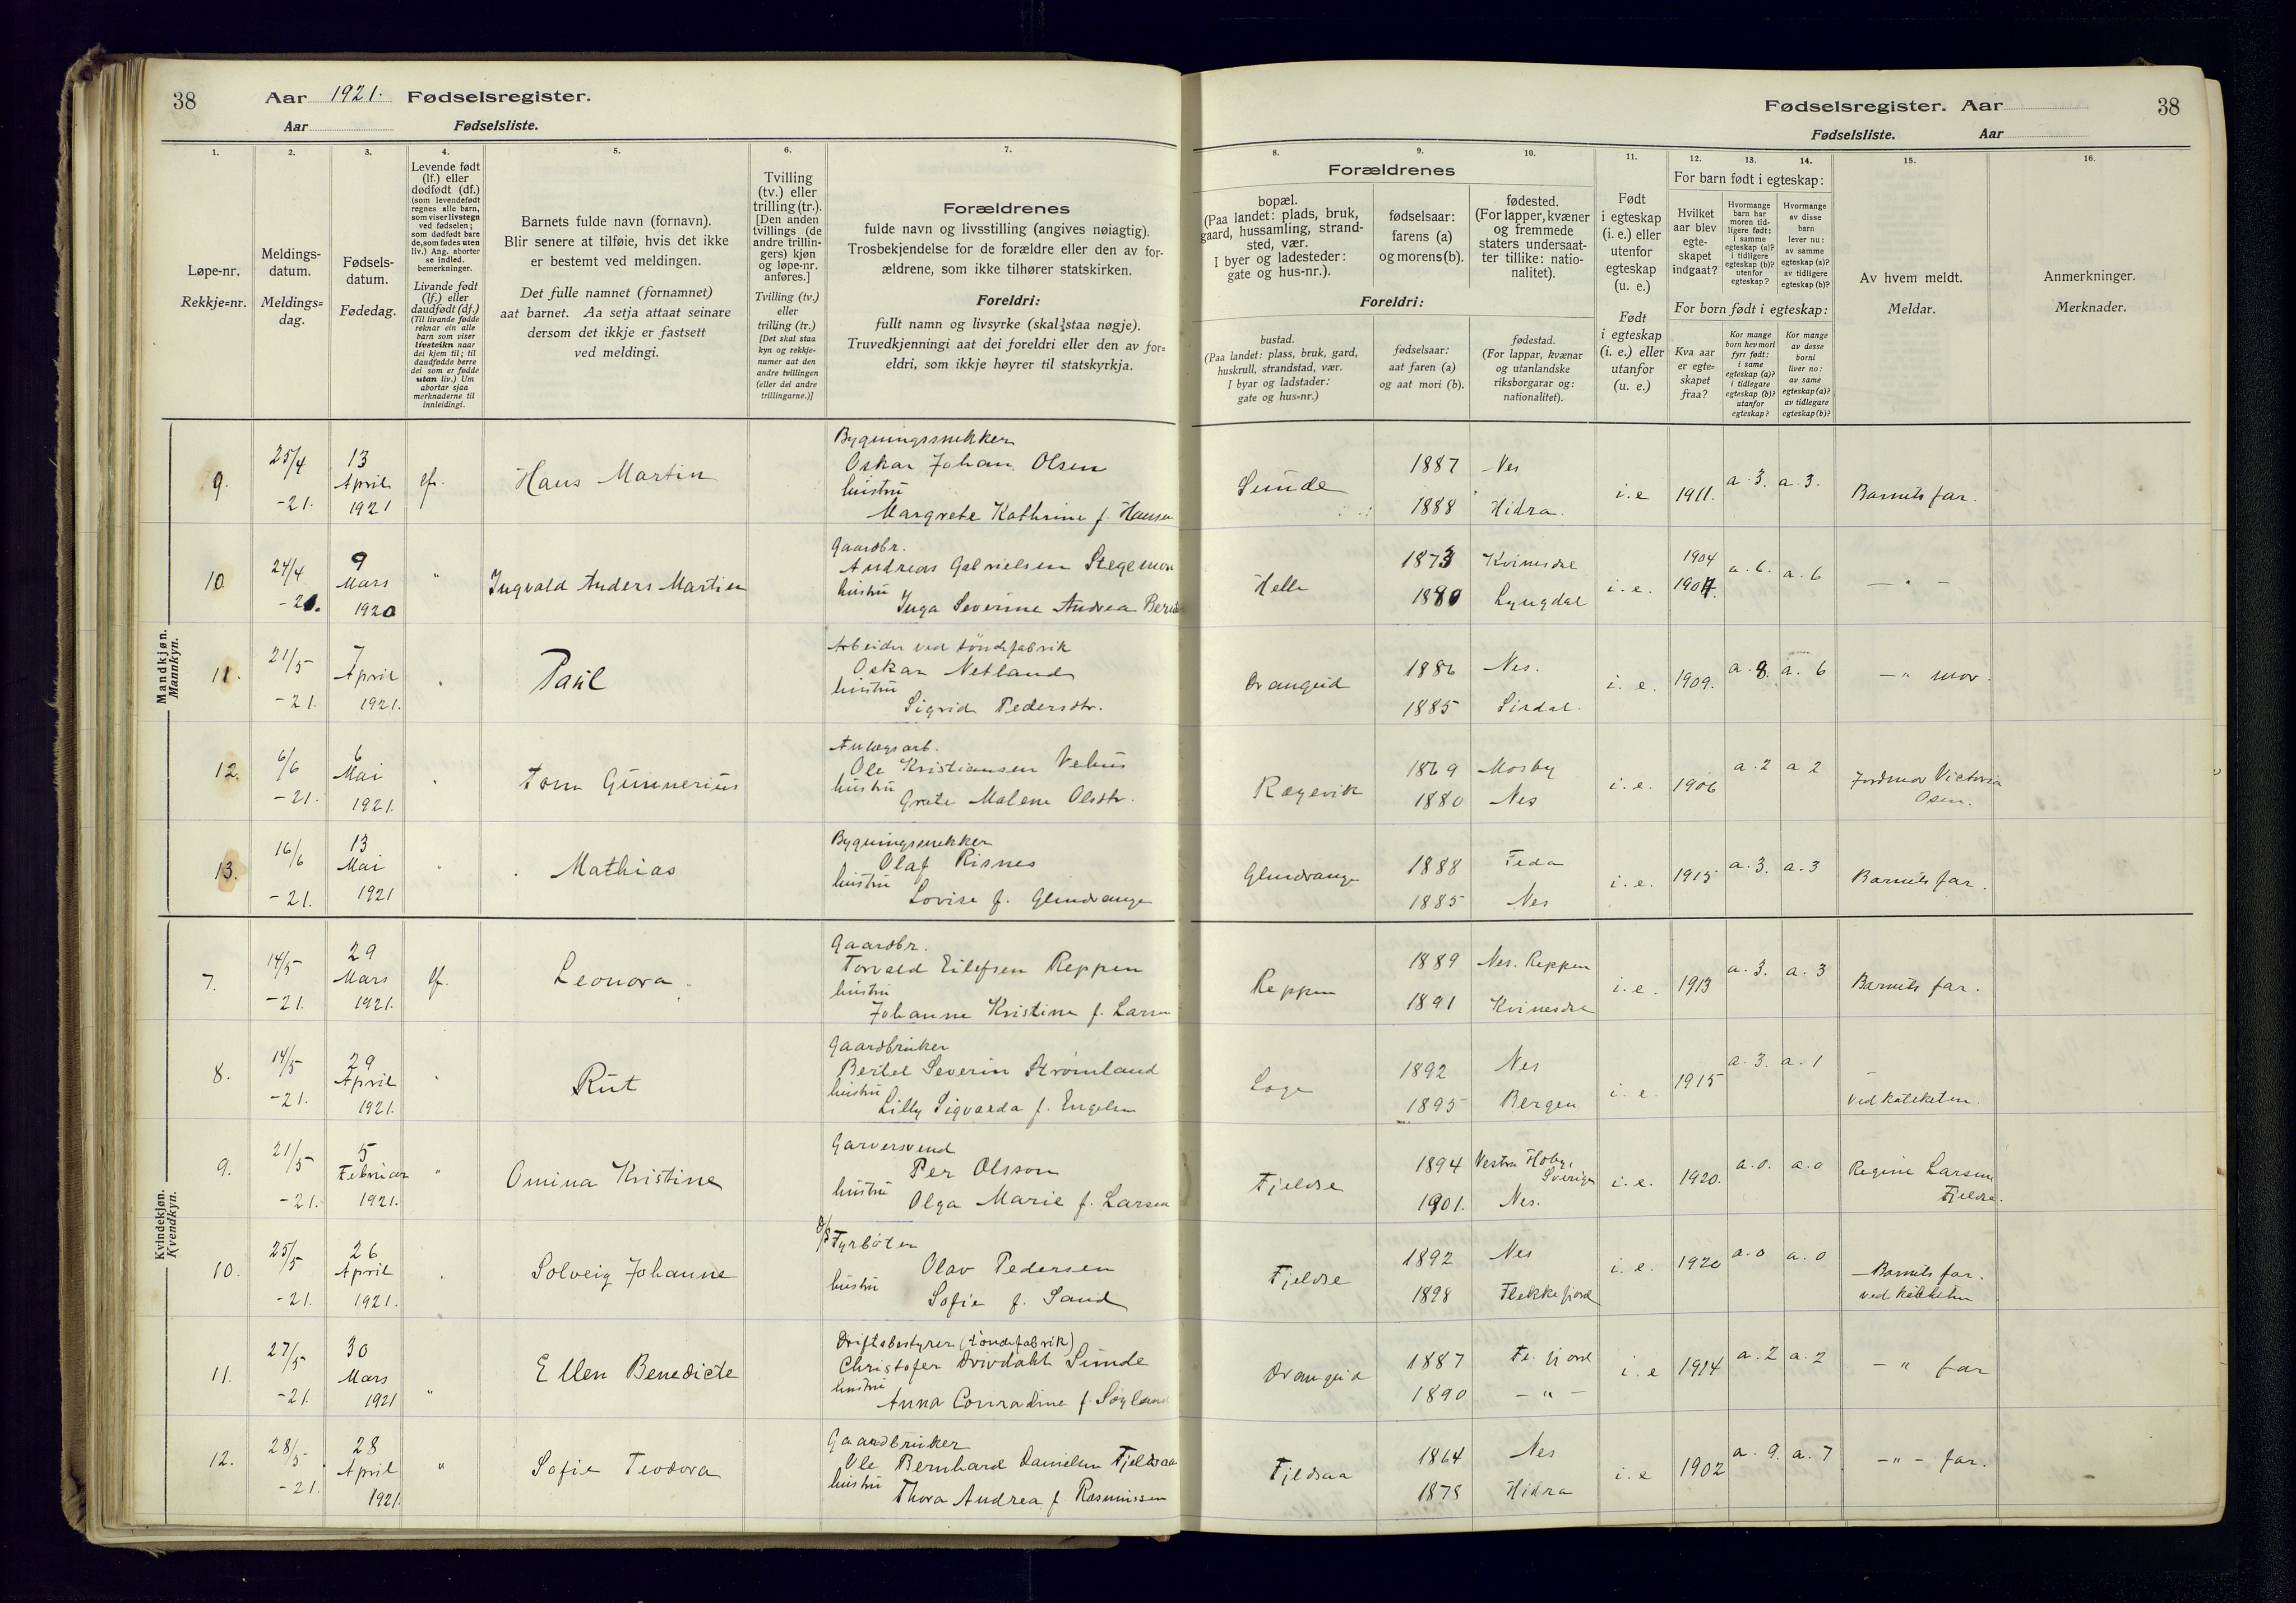 38
Aar 1921. Fødselsregister.
Aar Fødselsliste.
Fødselsregister. Aar
38
Fødselsliste. Aar
1.
Løpe-nr.
Rekkje=nr.
2.
Meldings-
datum.
Meldings=
dag.
3.
Fødsels-
datum.
Fødedag.
4.
Levende født
(lf.) eller
dødfødt (df.)
(som levendefødt
regnes alle barn,
som viser livstegn
ved fødselen;
som dødfødt bare
de, som fødes uten
liv.) Ang. aborter
se indled.
bemerkninger.
Livande født
(lf.) eller
daudfødt (df.)
(Til livande fødde
reknar ein alle
barn som viser
livsteikn naar
dei kjem til; til
daudfødde berre
dei som er fødde
utan liv.) Um
abortar sjaa
merknaderne til
innleidingi.
5.
Barnets fulde navn (fornavn).
Blir senere at tilføie, hvis det ikke
er bestemt ved meldingen.
Det fulle namnet (fornamnet)
aat barnet. Aa setja attaat seinare
dersom det ikkje er fastsett
ved meldingi.
6.
Tvilling
(tv.) eller
trilling (tr.).
[Den anden
tvillings (de
andre trillin-
gers) kjøn
og løpe-nr.
anføres.]
Tvilling (tv.)
eller
trilling (tr.)
[Det skal staa
kyn og rekkje-
numer aat den
andre tvillingen
(eller dei andre
trillingarne.)]
7.
Forældrenes
fulde navn og livsstilling (angives nøiagtig).
Trosbekjendelse for de forældre eller den av for-
ældrene, som ikke tilhører statskirken.
Foreldri:
fullt namn og livsyrke (skal staa nøgje).
Truvedkjenningi aat dei foreldri eller den av for=
eldri, som ikkje høyrer til statskyrkja.
Forældrenes
8.
bopæl.
(Paa landet: plads, bruk,
gaard, hussamling, strand-
sted, vær.
I byer og ladesteder:
gate og hus-nr.).
9.
fødselsaar:
farens (a)
og morens (b).
10.
fødested.
(For lapper, kvæner
og fremmede
staters undersaat-
ter tillike: natio-
nalitet).
Foreldri:
bustad.
(Paa landet: plass, bruk, gard,
huskrull, strandstad, vær.
I byar og ladstader:
gate og hus=nr.)
fødselsaar:
aat faren (a)
og aat mori (b).
fødestad.
(For lappar, kvænar
og utanlandske
riksborgarar og:
nationalitet).
11.
Født
i egteskap
(i. e.) eller
utenfor
egteskap
(u. e.)
Født
i egteskap
(i. e.) eller
utanfor
(u. e.)
For barn født i egteskap:
12.
Hvilket
aar blev
egte-
skapet
indgaat?
13.
Hvormange
barn har
moren tid-
ligere født:
i samme
egteskap (a)?
i tidligere
egteskap (b)?
utenfor
egteskap?
14.
Hvormange
av disse
barn
lever nu:
av samme
egteskap (a)?
av tidligere
egteskap (b)?
For born født i egteskap:
Kva aar
er egte=
skapet
fraa?
Kor mange
born hev mori
fyrr født:
i same
egteskap (a)?
i tidlegare
egteskap (b)?
utanfor
egteskap?
Kor mange
av desse
borni
liver no:
av same
egteskap (a)?
av tidlegare
egteskap (b)?
15.
Av hvem meldt.
Meldar.
16.
Anmerkninger.
Merknader.
Mandkjøn.
Mannkyn.
9. 25/4 -21. 13 April 1921 lf. Hans Martin
Bygningssnekker
Oskar Johan Olsen
hustru
Margrete Kathrine f. Hansen
Sunde 1887 Nes 1888 Hidra. i.e 1911. a.3. a.3. Barnets far.
10 24/4 -21. 9 Mars 1920 " Ingvald Anders Martin
Gaardbr.
Andreas Gabrielsen Stegemoen
hustru
Inga Severine Andrea
Helle 1873 Kvinesdal 1880 Lyngdal i.e. 1904 1904. a.6. a.6 — " —
11. 21/5 -21. 7 April 1921. " Paul
Arbeider ved tøndefabrik
Oskar Netland
hustru
Sigrid Pedersdtr.
Drangeid 1886 Nes. 1885 Sirdal. i.e. 1909. a.8. a.6 — " mor.
12. 6/6 -21. 6 Mai 1921. " Tom Gunnerius
Anlægsarb.
Ole Kristiansen Vehus
hustru
Grete Malene Olsdtr.
Røgevik 1869 Mosby 1880 Nes i.e. 1906 a.2 a 2 Jordmor Victoria
Osen.
13. 16/6 -21. 13 Mai 1921 " Mathias
Bygningssnekker
Olaf Risnes
hustru
Lovise f. Glendrange
Glendrange 1888 Feda 1885 Nes i.e. 1915 a.3. a.3 Barnets far.
Kvindekjøn.
Kvendkyn.
7. 14/5 -21. 29 Mars 1921. lf. Leonora.
Gaardbr.
Torvald Eilefsen Reppen
hustru
Johanne Kristine f. Larsen
Reppen 1889 Nes. Reppen 1891 Kvinesdal i.e. 1913 a.3. a.3 Barnets far.
8. 14/5 -21. 29 April 1921. " Rut
Gaardbruker
Bertel Severin Strømland
hustru
Lilly Sigvarda f. Engelsen
Loge 1892 Nes 1895 Bergen i.e. 1915 a.3. a.1 —
ved kateketen.
9. 21/5 -21. 5 Februar 1921. " Omina Kristine
Garversvend
Per Olsson
hustru
Olga Marie f. Larsen
Fjeldse 1894 Vestra Hoby,
Sverige
1901. Nes. i.e. 1920. a.0. a.0 Regine Larsen
Fjeldse.
10. 25/5 -21. 26 April 1921. " Solveig Johanne
Fyrbøter
Olav Pedersen
hustru
Sofie f. Sand
Fjeldse 1892 Nes 1898 Flekkefjord i.e. 1920 a.0 a.0 — Barnets far.
ved kateketen
11. 27/5 -21. 30 Mars 1921 " Ellen Benedicte
Driftsbestyrer (tøndefabrik)
Christofer Drivdahl Sunde
hustru
Anna Conradine f. Søyland
Drangeid 1887 Fl. fjord 1890 — " — i.e 1914 a.2 a.2 — " far
12. 28/5 -21. 28 April 1921. " Sofie Teodora
Gaardbruker
Ole Bernhard Danielsen Fjeldsaa
hustru
Thora Andrea f. Rasmussen
Fjeldsaa 1864 Nes 1878 Hidra i.e 1902 a.9. a.7 — " — far.